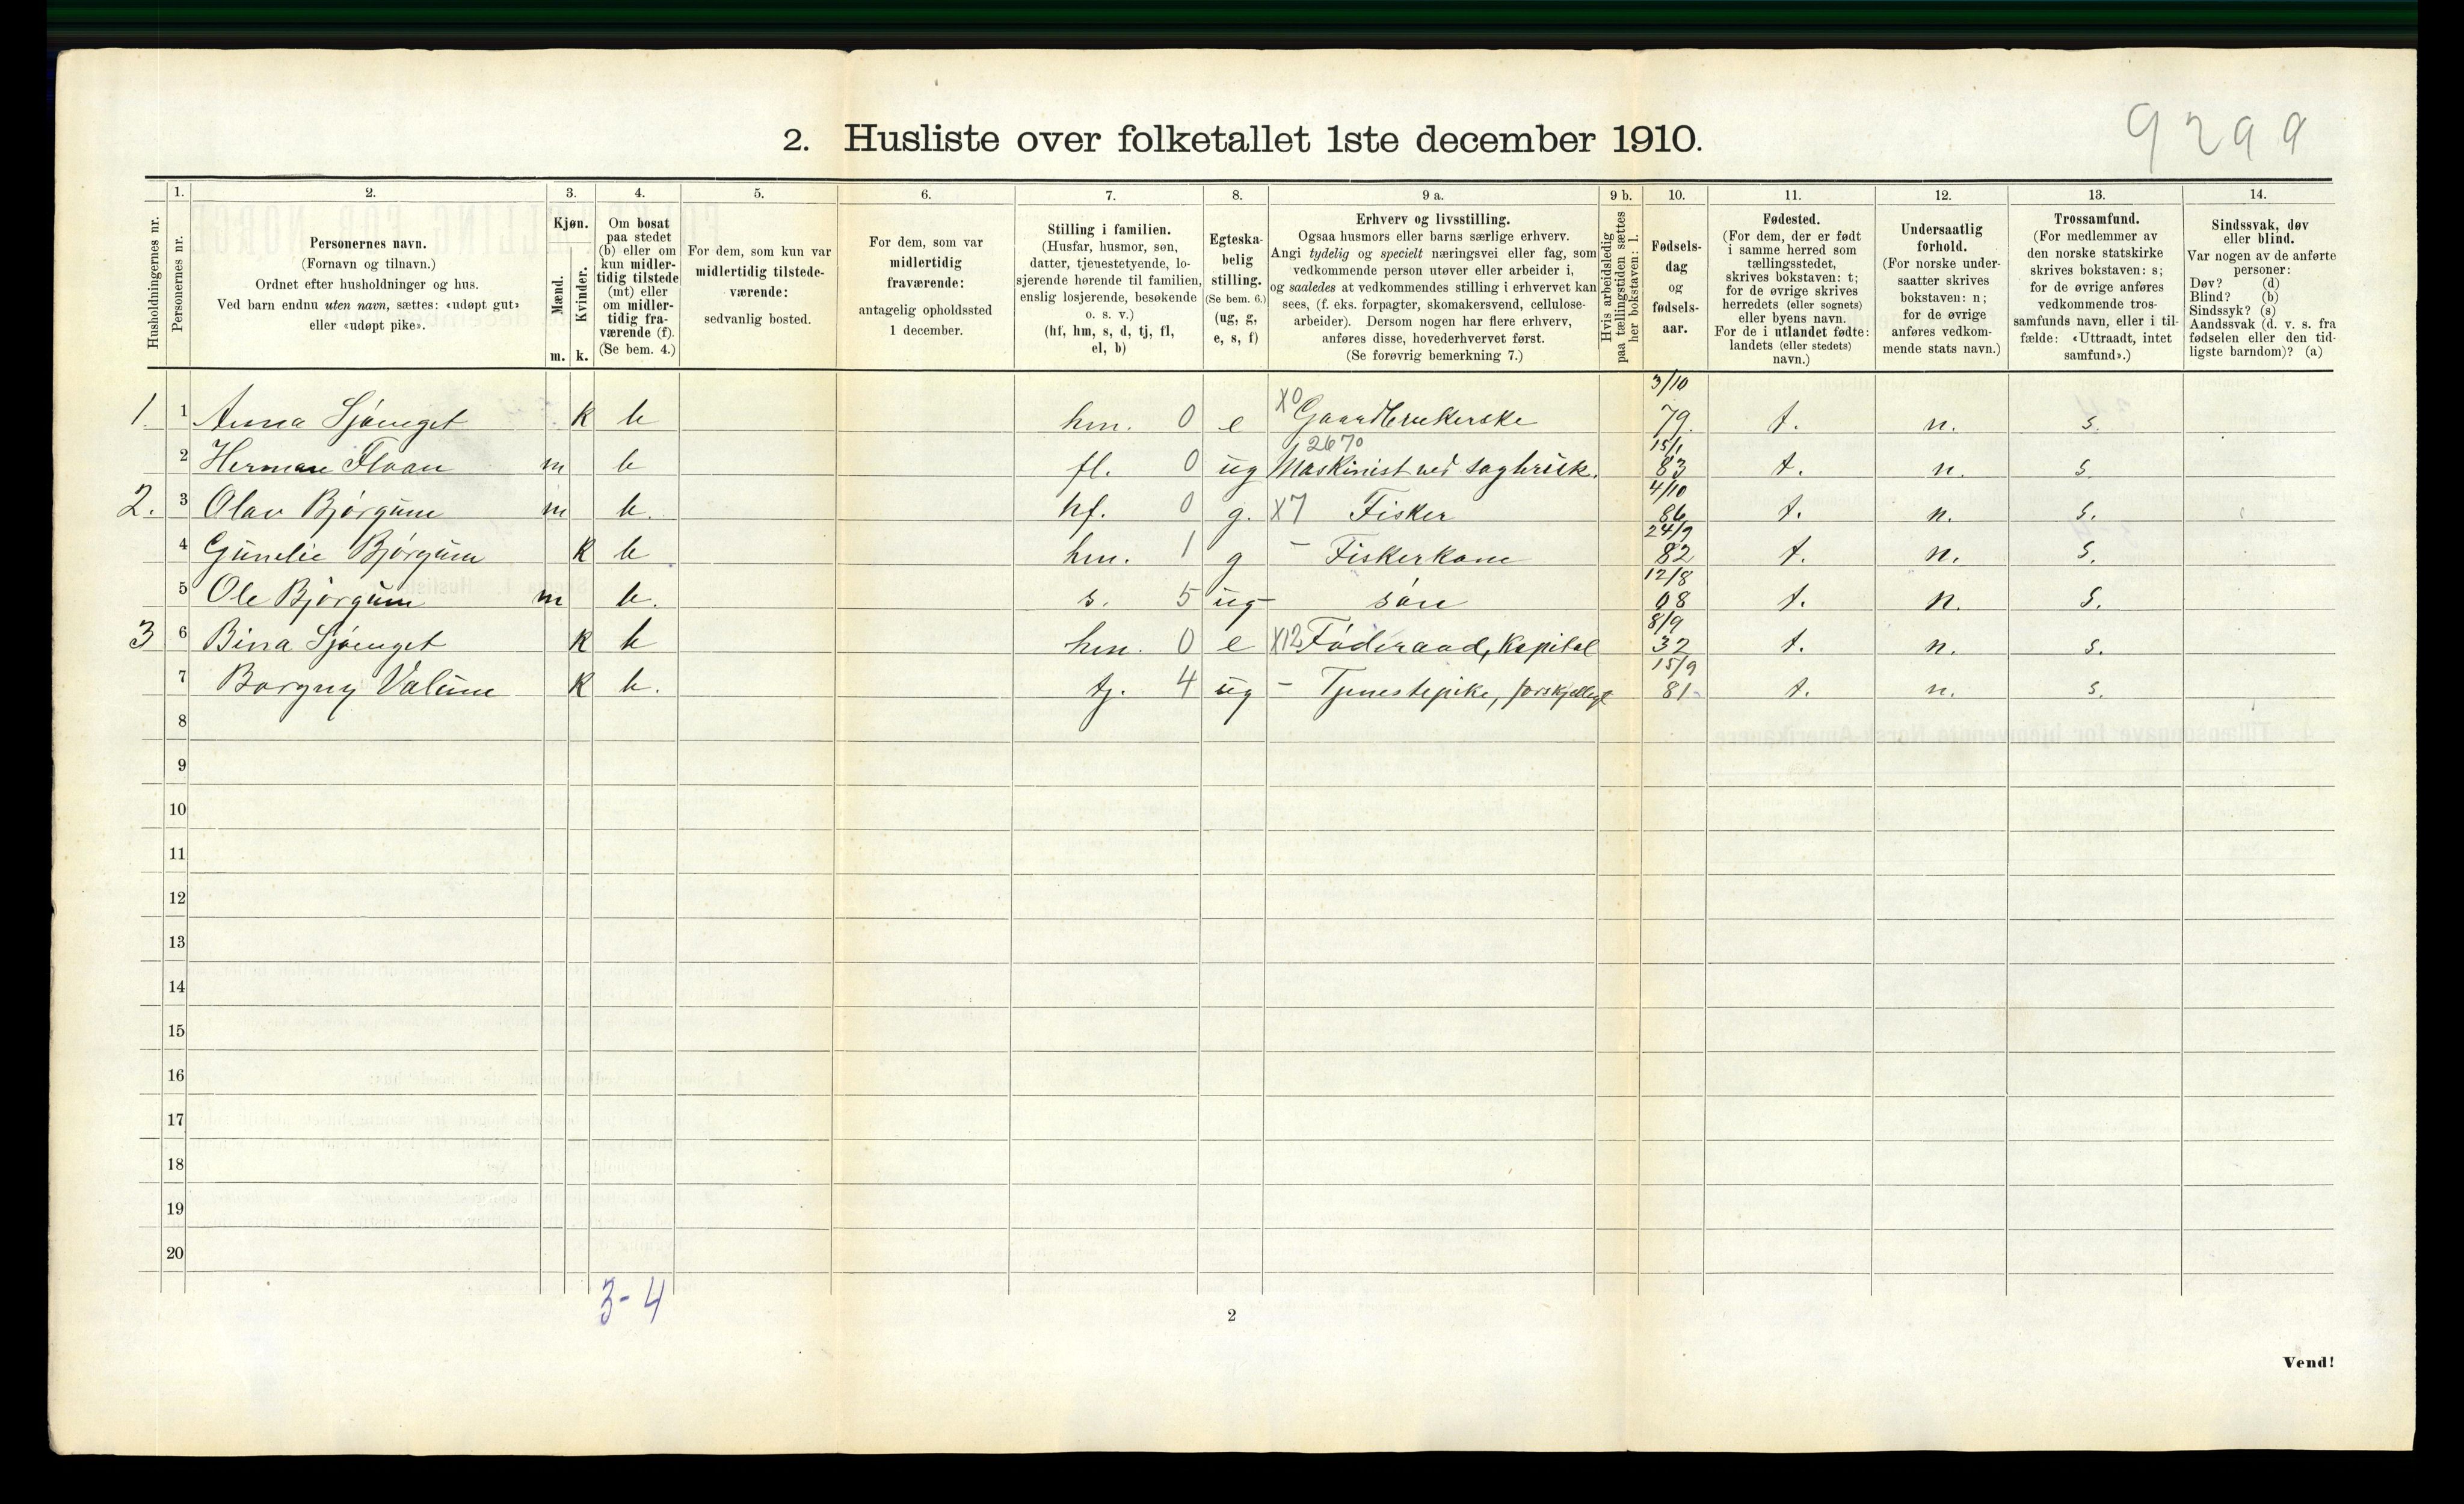 9299
2. Husliste over folketallet 1ste december 1910.
1. 2. 3. 4. 5. 6. 7. 8. 9 a. 9 b. 10. 11. 12. 13. 14.
Husholdningernes nr.
Personernes nr.
Personernes navn.
(Fornavn og tilnavn.)
Ordnet efter husholdninger og hus.
Ved barn endnu uten navn, sættes: «udøpt gut»
eller «udøpt pike».
Kjøn.
Mænd.
Kvinder.
m. k.
Om bosat
paa stedet
(b) eller om
kun midler-
tidig tilstede
(mt) eller
om midler-
tidig fra-
værende (f).
(Se bem. 4.)
For dem, som kun var
midlertidig tilstede-
værende:
sedvanlig bosted.
For dem, som var
midlertidig
fraværende:
antagelig opholdssted
1 december.
Stilling i familien.
(Husfar, husmor, søn,
datter, tjenestetyende, lo-
sjerende hørende til familien,
enslig losjerende, besøkende
o. s. v.)
(hf, hm, s, d, tj, fl,
el, b)
Egteska-
belig
stilling.
(Se bem. 6.)
(ug, g,
e, s, f)
Erhverv og livsstilling.
Ogsaa husmors eller barns særlige erhverv.
Angi tydelig og specielt næringsvei eller fag, som
vedkommende person utøver eller arbeider i,
og saaledes at vedkommendes stilling i erhvervet kan
sees, (f. eks. forpagter, skomakersvend, cellulose-
arbeider). Dersom nogen har flere erhverv,
anføres disse, hovederhvervet først.
(Se forøvrig bemerkning 7.)
Hvis arbeidsledig
paa tællingstiden sættes
her bokstaven: l.
Fødsels-
dag
og
fødsels-
aar.
Fødested.
(For dem, der er født
i samme herred som
tællingsstedet,
skrives bokstaven: t;
for de øvrige skrives
herredets (eller sognets)
eller byens navn.
For de i utlandet fødte:
landets (eller stedets)
navn.)
Undersaatlig
forhold.
(For norske under-
saatter skrives
bokstaven: n;
for de øvrige
anføres vedkom-
mende stats navn.)
Trossamfund.
(For medlemmer av
den norske statskirke
skrives bokstaven: s;
for de øvrige anføres
vedkommende tros-
samfunds navn, eller i til-
fælde: «Uttraadt, intet
samfund».)
Sindssvak, døv
eller blind.
Var nogen av de anførte
personer:
Døv? (d)
Blind? (b)
Sindssyk? (s)
Aandssvak (d. v. s. fra
fødselen eller den tid-
ligste barndom)? (a)
1. 1 Anna Sjøenget k b hm. 0 e X0 Gaardbrukerske 3/10 79. t. n. s.
2 Herman Floan m b fl. 0 ug 2670 Maskinist ved sagbruk. 15/1 83 t. n. s.
2. 3 Olav Bjørgum m b. hf. 0 g. X7 Fisker 4/10 86 t. n. s.
4 Gunelie Bjørgum k b hm. 1 g - Fiskerkone 24/9 82 t. n. s.
5 Ole Bjørgum m b. s. 5 ug - søn 12/8 08 t. n. s.
3 6 Bina Sjøenget k b hm. 0 e X12 Føderaad, Kapital 8/9 32 t. n. s.
7 Borgny Valum k b. tj. 4 ug - Tjenestepike, forskjelligt 15/9 81 t. n. s.
8
9
10
11
12
13
14
15
16
17
18
19
20
3-4
2
Vend!